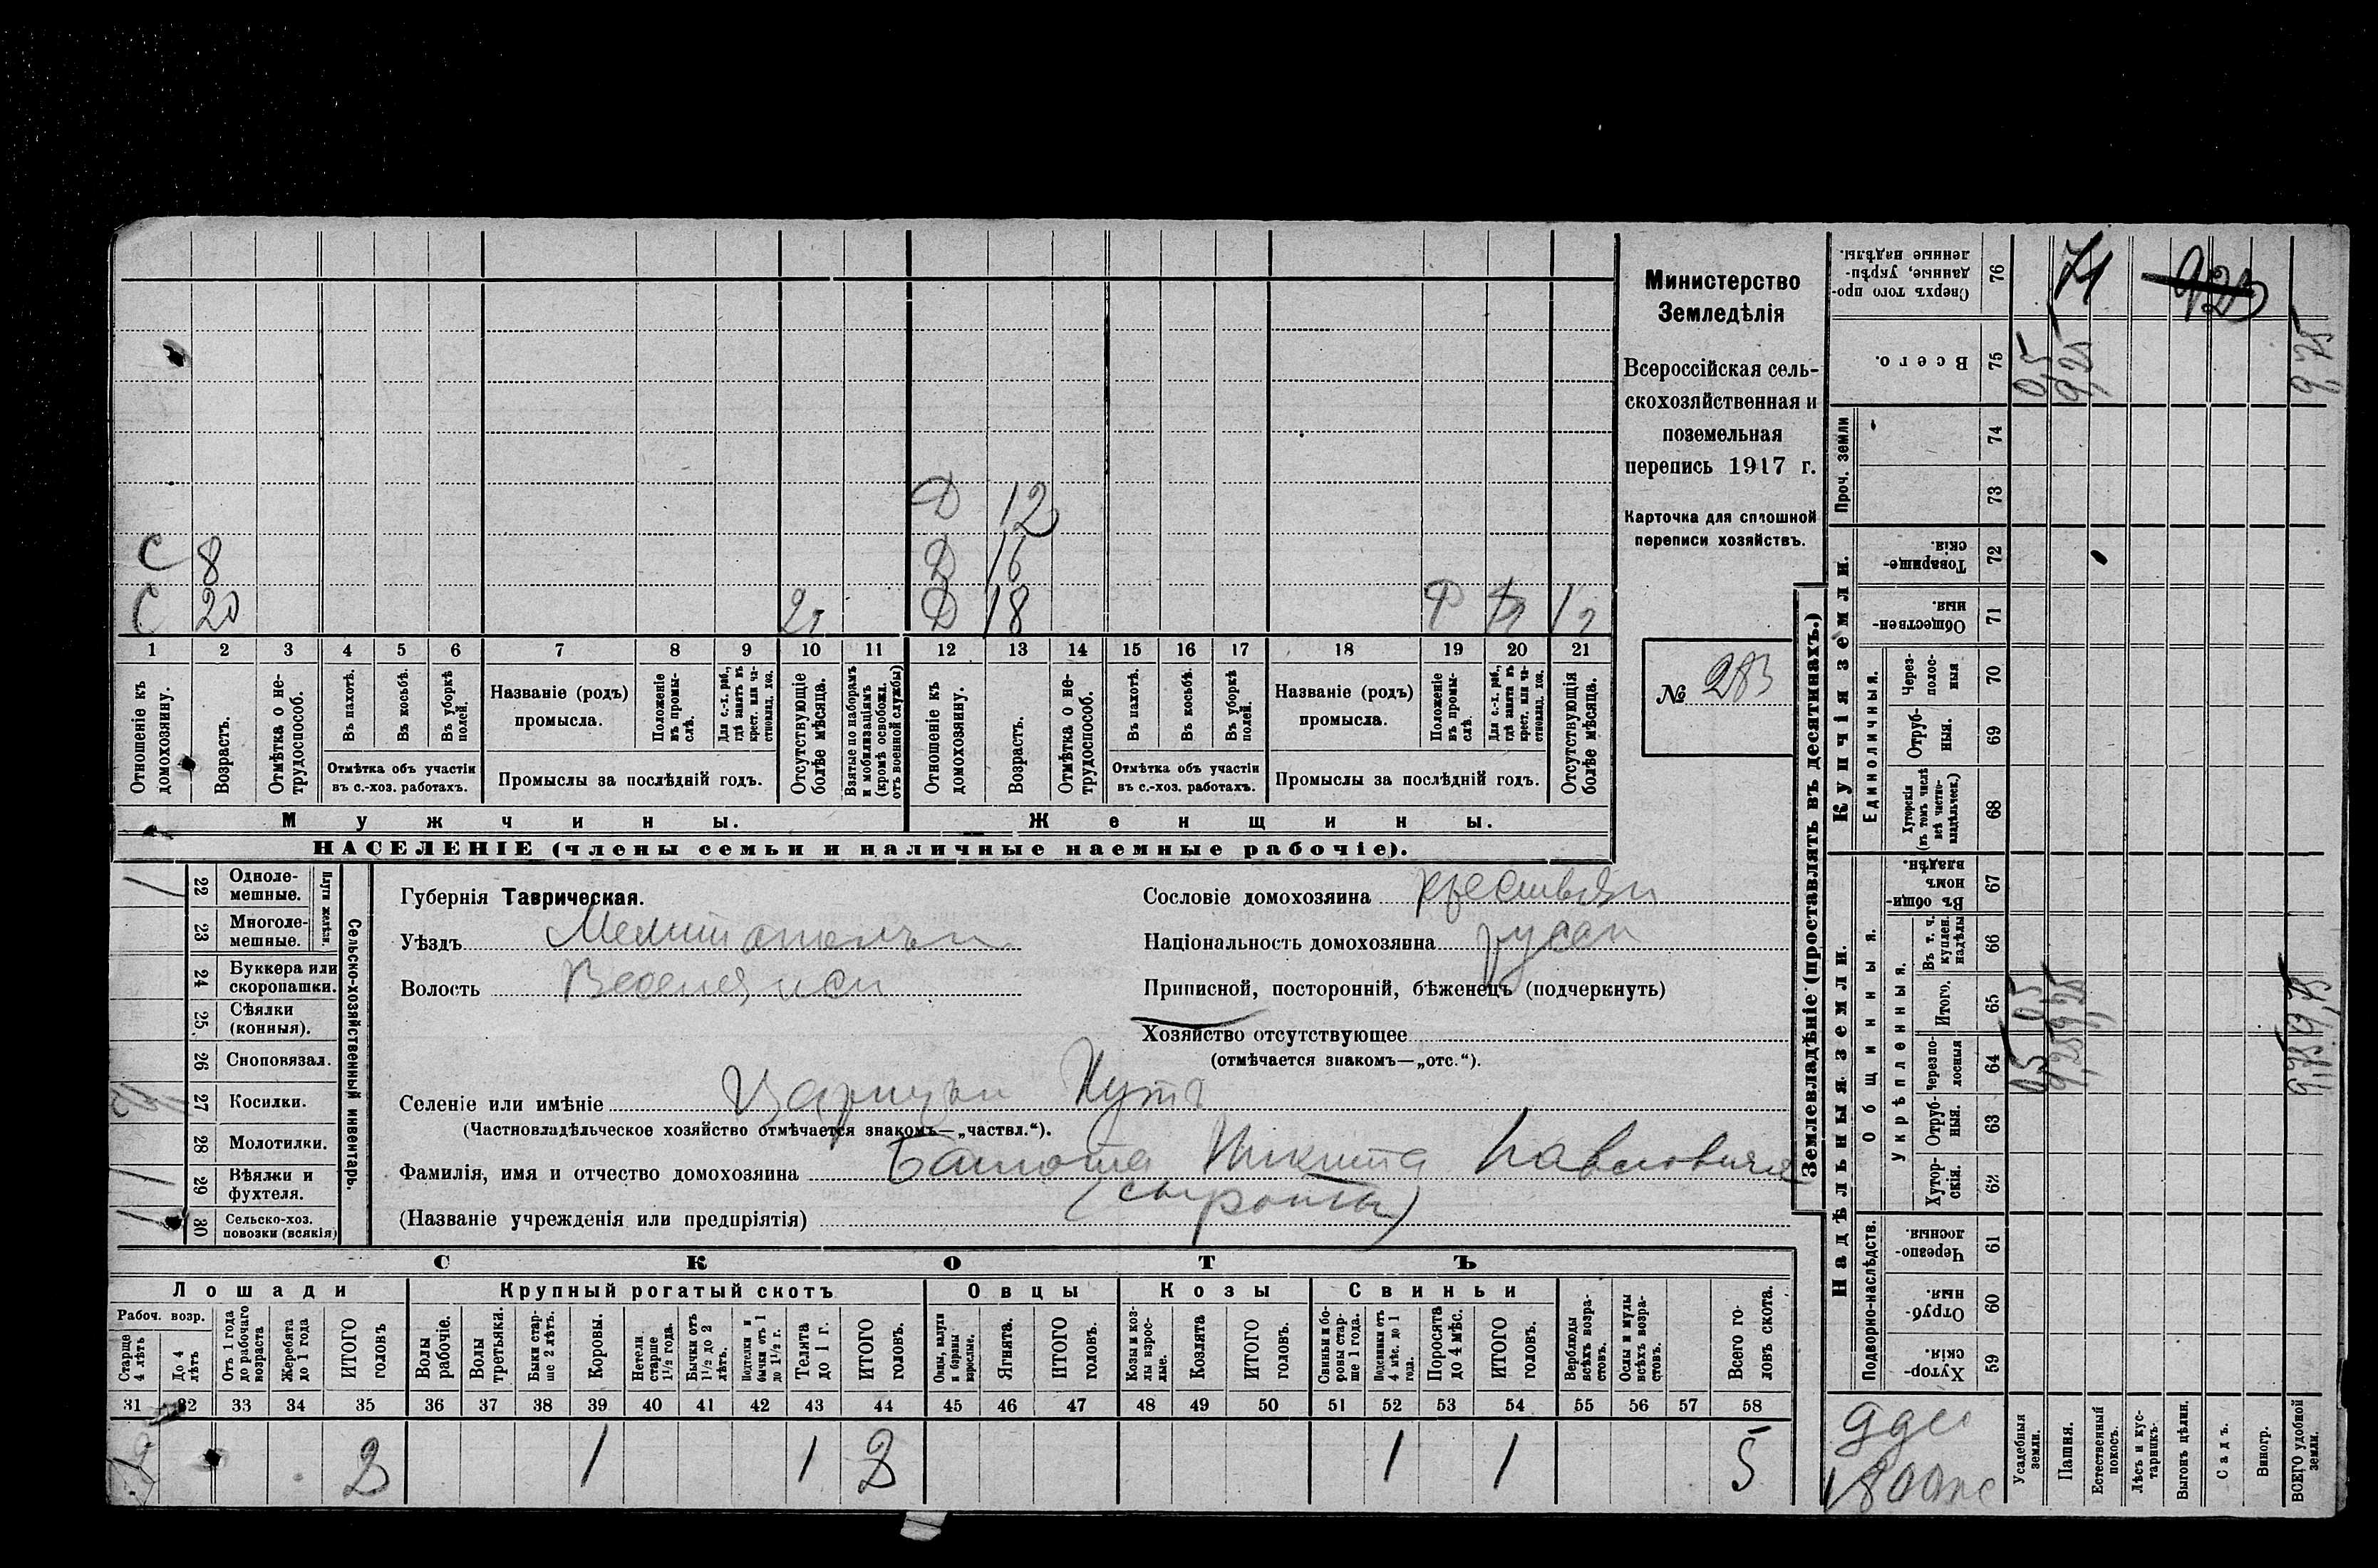 Министерство
Земледѣлія
Всероссійская сель-
скохозяйственная и
поземельная
перепись 1917 г.
Карточка для сплошной
переписи хозяйствъ.
№ 283
Д 12
С 8 Д 16
С 20 Д 18
1 2 3 4 5 6 7 8 9 10 11 12 13 14 15 16 17 18 19 20 21
Отношеніе къ домохозяину.
Возрастъ.
Отмѣтка о не-трудоспособ.
Въ пахотѣ.
Въ косьбѣ.
Въ уборкѣ полей.
Отмѣтка объ участіи
въ с.-хоз. работахъ.
Названіе (родъ)
промысла.
Положеніе въ промы-слѣ.
Для с.-х. раб., гдѣ занятъ въ крест. или ча-стновлад. хоз.
Промыслы за послѣдній годъ.
Отсутствующіе болѣе мѣсяца.
Взятые по наборамъ и мобилизаціямъ (кромѣ освобожд. отъ военной службы)
Отношеніе къ домохозяину.
Возрастъ.
Отмѣтка о не-трудоспособ.
Въ пахотѣ.
Въ косьбѣ.
Въ уборкѣ полей.
Отмѣтка объ участіи
въ с.-хоз. работахъ.
Названіе (родъ)
промысла.
Положеніе въ промы-слѣ.
Для с.-х. раб., гдѣ занята въ крест. или ча-стновлад. хоз.
Промыслы за послѣдній годъ.
Отсутствующія болѣе мѣсяца.
Мужчины. Женщины.
НАСЕЛЕНІЕ (члены семьи и наличные наемные рабочіе).
Сельско-хозяйственный инвентарь.
Плуги желѣзн.
22 Одноле-мешные.
23 Многоле-мешные.
24 Буккера или скоропашки.
25 Сѣялки (конныя).
26 Сноповязал.
27 Косилки.
28 Молотилки.
29 Вѣялки и фухтеля.
30 Сельско-хоз. повозки (всякія)
Губернія Таврическая.
Уѣздъ
Волость
Сословіе домохозяина
Національность домохозяина
Приписной, посторонній, бѣженецъ (подчеркнуть)
Хозяйство отсутствующее
(отмѣчается знакомъ—„отс.“).
Селеніе или имѣніе Кутъ
(Частновладѣльческое хозяйство отмѣчается знакомъ—„частвл.“).
Фамилія, имя и отчество домохозяина Никита Павловичъ
(сыроты)
(Названіе учрежденія или предпріятія)
СКОТЪ
Лошади Крупный рогатый скотъ Овцы Козы Свиньи
Рабоч. возр.
Старше 4 лѣтъ
До 4 лѣтъ
Отъ 1 года до рабочаго возраста
Жеребята до 1 года
ИТОГО головъ
Волы рабочіе.
Волы третьяки.
Быки стар-ше 2 лѣтъ.
Коровы.
Нетели старше 1½ года.
Бычки отъ 1½ до 2 лѣтъ.
Подтелки и бычки отъ 1 до 1½ г.
Телята до 1 г.
ИТОГО головъ.
Овцы, валухи и бараны взрослые.
Ягнята.
ИТОГО головъ.
Козы и коз-лы взрос-лые.
Козлята
ИТОГО головъ.
Свиньи и бо-ровы стар-ше 1 года.
Подсвинки отъ 4 мѣс. до 1 года.
Поросята до 4 мѣс.
ИТОГО головъ.
Верблюды всѣхъ возра-стовъ.
Ослы и мулы всѣхъ возра-стовъ.
Всего го-ловъ скота.
31 32 33 34 35 36 37 38 39 40 41 42 43 44 45 46 47 48 49 50 51 52 53 54 55 56 57 58
2 1 1 2 1 1 5
Землевладѣніе (проставлять въ десятинахъ.)
Сверхъ того про-данные, укрѣп-ленные надѣлы. 76
Всего. 75
Проч. земли 74
73
Купчія земли.
Товарище-скія. 72
Обществен-ныя. 71
Единоличныя.
Через-полос-ныя 70
Отруб-ныя. 69
Хуторскія (въ томъ числѣ всѣ частно-владѣльческ.) 68
Надѣльныя земли.
Общинныя.
Въ общин-номъ владѣн. 67
Укрѣпленныя.
Въ т. ч. куплен. надѣлы 66
Итого. 65
Черезпо-лосныя 64
Отруб-ныя. 63
Хутор-скія. 62
Подворно-наслѣдств.
Черезпо-лосныя. 61
Отруб-ныя. 60
Хутор-скія. 59
Усадебныя земли. 0,5 0,5 0,5
Пашня. 9,25 9,25 9,25
Естественный покосъ.
Лѣсъ и кус-тарникъ.
Выгонъ цѣлин.
Садъ.
Виногр.
ВСЕГО удобной земли. 9,75 9,75 9,75